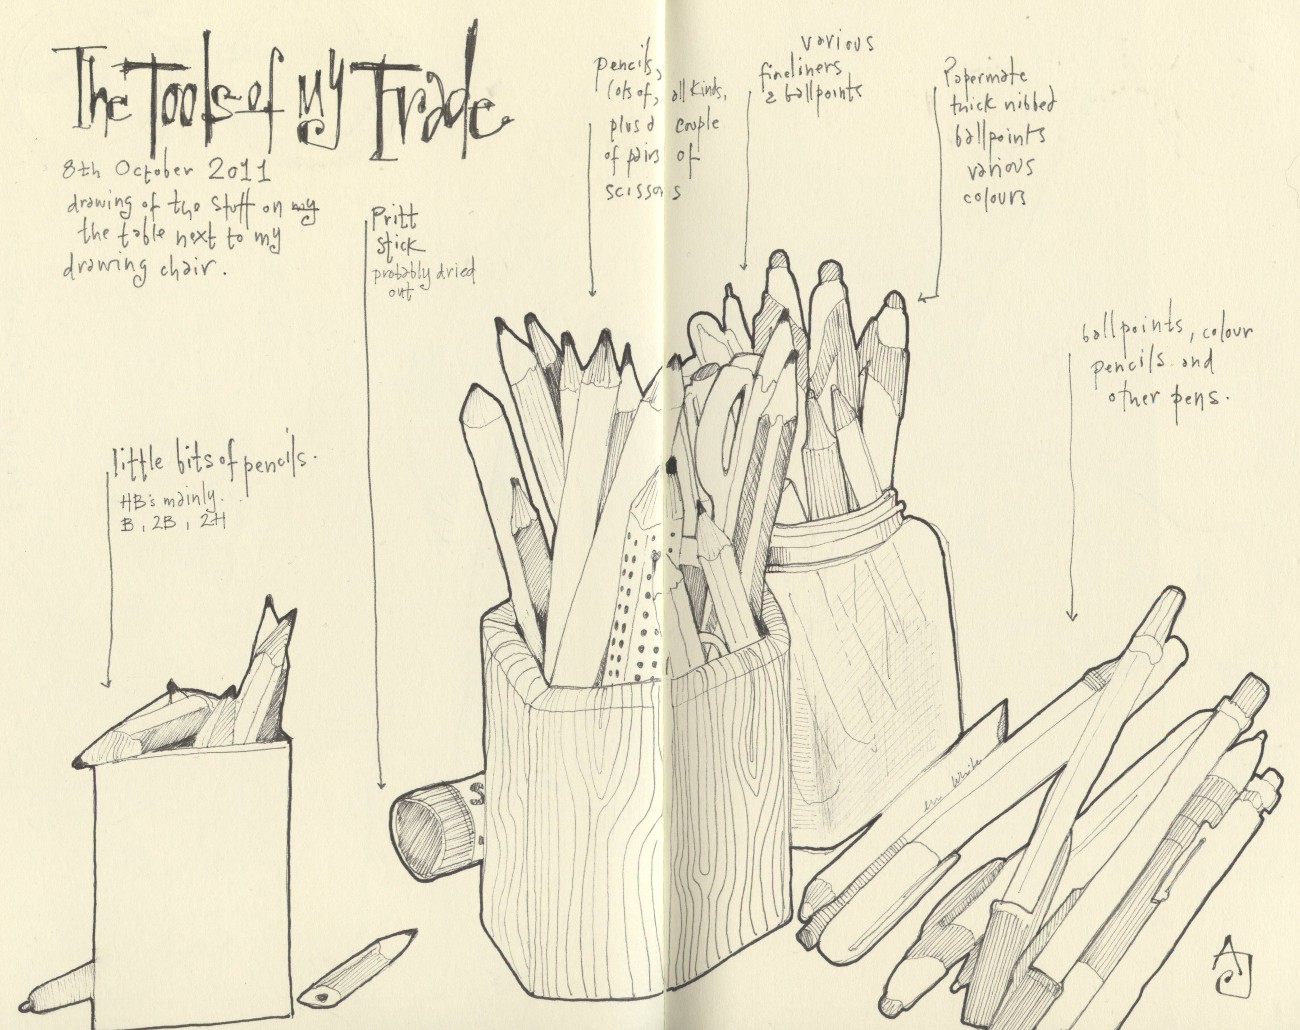 The Tools of My Trade
8th October 2011
drawing of the stuff on my
the table next to my
drawing chair.
Pritt
stick
probably dried
out
pencils,
lots of, all kinds,
plus a couple
of pairs of
scissors
various
fineliners
& ballpoints
Papermate
thick nibbed
ballpoints
various
colours
ballpoints, colour
pencils and
other pens.
little bits of pencils.
HB's mainly.
B, 2B, 2H
S
AJ